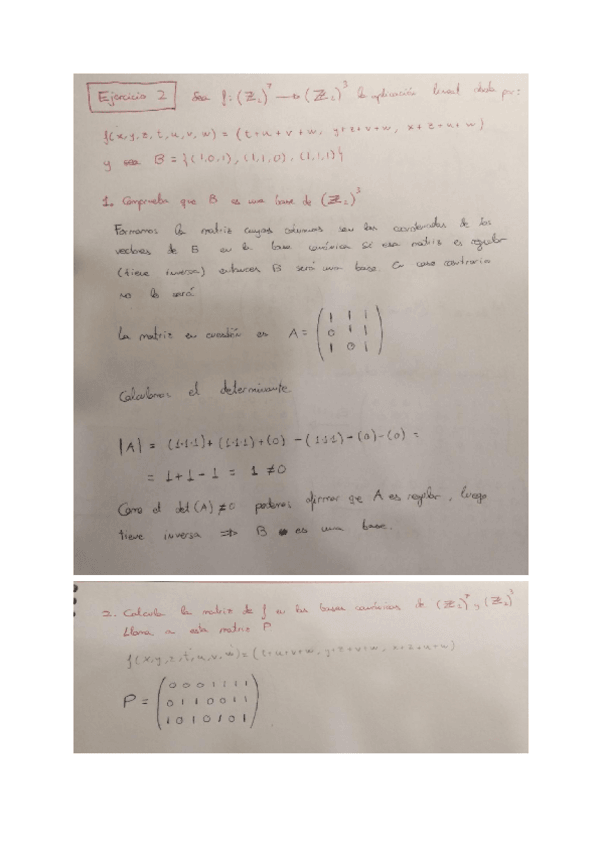 Ejercicio 2 Sea f: (ℤ₂)⁷ → (ℤ₂)³ la aplicación lineal dada por:
f(x,y,z,t,u,v,w) = (t+u+v+w, y+z+v+w, x+z+u+w)
y sea B = {(1,0,1), (1,1,0), (1,1,1)}
1. Comprueba que B es una base de (ℤ₂)³
Formamos la matriz cuyas columnas son las coordenadas de los
vectores de B en la base canónica si esa matriz es regular
(tiene inversa) entonces B será una base. En caso contrario
no lo será
La matriz en cuestión es A = ( 1 1 1
0 1 1
1 0 1 )
Calculamos el determinante
|A| = (1·1·1)+(1·1·1)+(0) -(1·1·1)-(0)-(0) =
= 1+1-1 = 1 ≠0
Como el det(A) ≠0 podemos afirmar que A es regular, luego
tiene inversa ⇒ B es una base.
2. Calcula la matriz de f en las bases canónicas de (ℤ₂)⁷ y (ℤ₂)³
Llama a esta matriz P
f(x,y,z,t,u,v,w)=(t+u+v+w, y+z+v+w, x+z+u+w)
P = ( 0 0 0 1 1 1 1
0 1 1 0 0 1 1
1 0 1 0 1 0 1 )